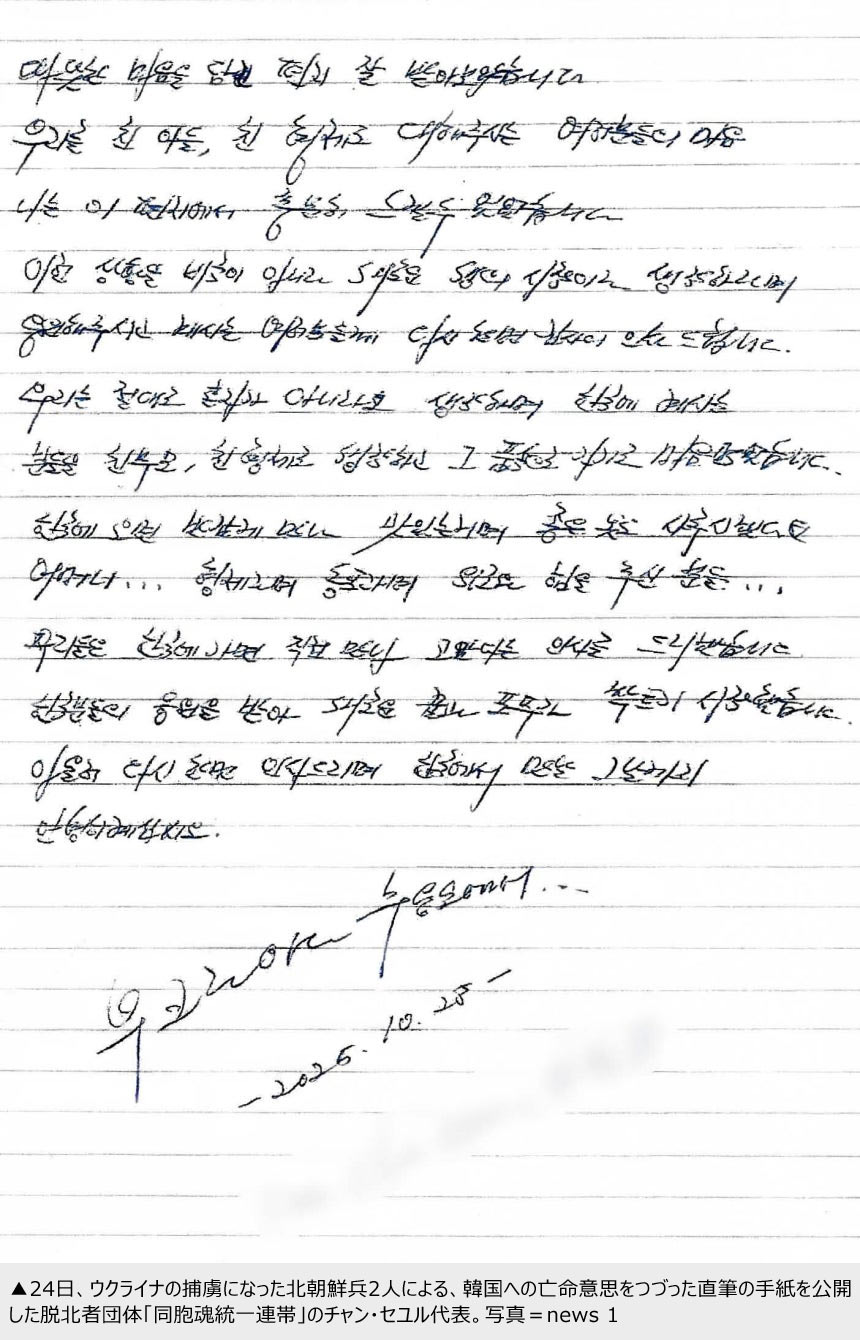 따뜻한 마음을 담은 편지 잘 받아보았습니다
우리를 친 아들, 친 형제로 대해주시는 여러분들의 마음
나는 이 편지에서 충분히 느낄수 있었습니다
이런 상황은 비극이 아니라 새로운 삶의 시작이라 생각하라며
응원해주시고 계시는 여러분들께 다시 한번 감사의 인사 드립니다.
우리는 절대로 혼자가 아니라고 생각하며 한국에 계시는
분들을 친부모, 친형제로 생각하고 그 품속으로 가기로 마음먹었습니다.
한국에 오면 반갑게 만나 맛있는거며 좋은 옷도 사주시겠다는
어머니... 형제라며 동포라며 위로와 힘을 주신 분들...
우리들은 한국에 가면 직접 만나 고맙다는 인사를 드리겠습니다
한국분들의 응원을 받아 새로운 꿈과 포부가 싹트기 시작했습니다.
다시 한번 인사드리며 한국에서 만날 그날까지
안녕히계십시오.
우크라이나 수용소에서...
-2025. 10. 28-
▲24日、ウクライナの捕虜になった北朝鮮兵2人による、韓国への亡命意思をつづった直筆の手紙を公開
した脱北者団体「同胞魂統一連帯」のチャン・セユル代表。写真＝news 1